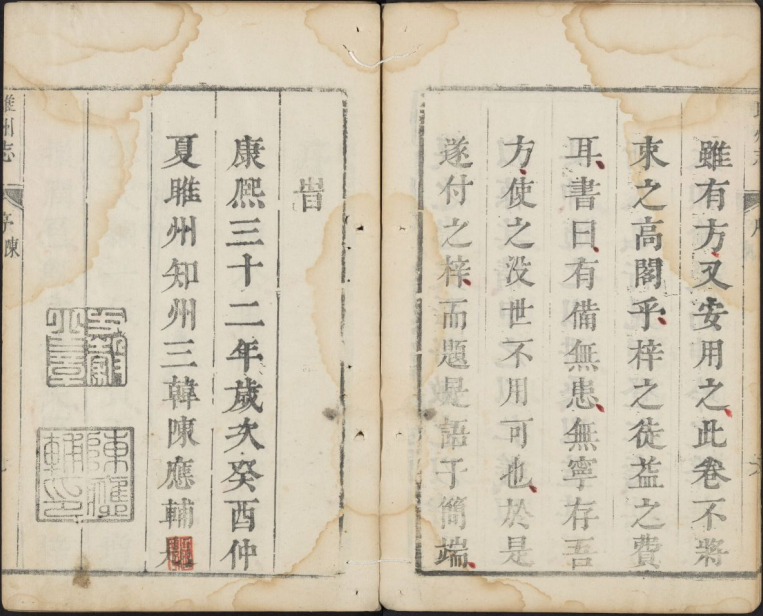 雖有方又安用之此卷不將
束之高閣乎梓之徒益之費
耳書曰有備無患無寧存吾
方使之没世不用可也於是
遂付之梓而題是語于簡端
旹
康熙三十二年歲次癸酉仲
夏睢州知州三韓陳應輔
睢州志
序陳
陳應輔印